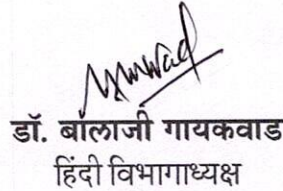 डॉ. बालाजी गायकवाड
हिंदी विभागाध्यक्ष